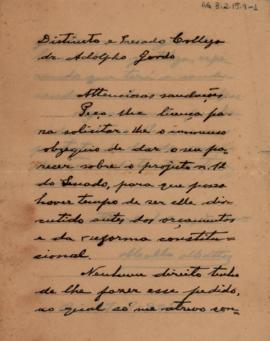 AG 3.2.15.1-1
Distincto e Presado Collega
dr. Adolpho Gordo
Attenciosas saudações
Peço-lhe licença pa-
ra solicitar-lhe o immenso
obzequio de dar o seu pa-
recer sobre o projeto n. 12
do Senado, para que possa
haver tempo de ser elle dis-
cutido antes dos orçamentos
e da reforma constitu-
cional.
Nenhum direito tenho
de lhe fazer esse pedido,
ao qual só me atrevo con-